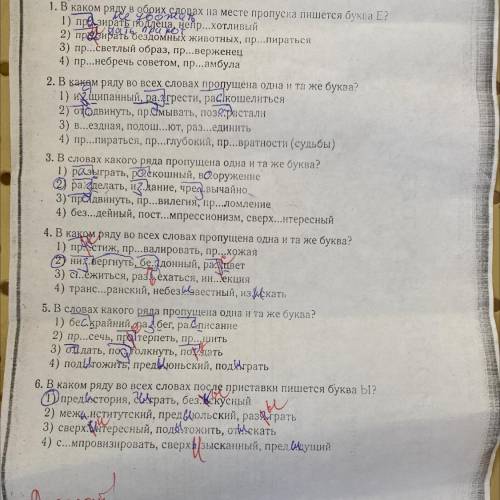 1. В каком ряду в обоих словах на месте пропуска пишется буква Е?
не уважать
1) презирать подлеца, непр...хотливый
дать приют
2) призирать бездомных животных, пр...пираться
3) пр...светлый образ, пр...верженец
4) пр...небречь советом, пр...амбула
2. В каком ряду во всех словах пропущена одна и та же буква?
1) и щипанный, разгрести, раскошелиться
2) отодвинуть, пр...смывать, поз растали
3) в...ездная, подош...ют, раз...единить
4) пр...пираться, пр...глубокий, пр...вратности (судьбы)
3. В словах какого ряда пропущена одна и та же буква?
1) разыграть, роскошный, вооружение
2) разделать, издание, чрезвычайно
3) продвинуть, пр...вилегия, пр...ломление
4) без...дейный, пост...мпрессионизм, сверх...нтересный
4. В каком ряду во всех словах пропущена одна и та же буква?
1) престиж, пр...валировать, пр...хожая
2) низвергнуть, бездонный, расцвет
3) с...ёжиться, разъехаться, ин...екция
4) транс...ранский, небезызвестный, изыскать
5. В словах какого ряда пропущена одна и та же буква?
1) бескрайний, разбег, расписание
2) пр...сечь, претерпеть, пр...шить
3) отдать, подтолкнуть, поддать
4) подытожить, предиюньский, подиграть
6. В каком ряду во всех словах после приставки пишется буква Ы?
1) предыстория, сыграть, безыскусный
2) межинститутский, предиюльский, разыграть
3) сверхинтересный, подытожить, отыскать
4) с...мпровизировать, сверхизысканный, предыдущий